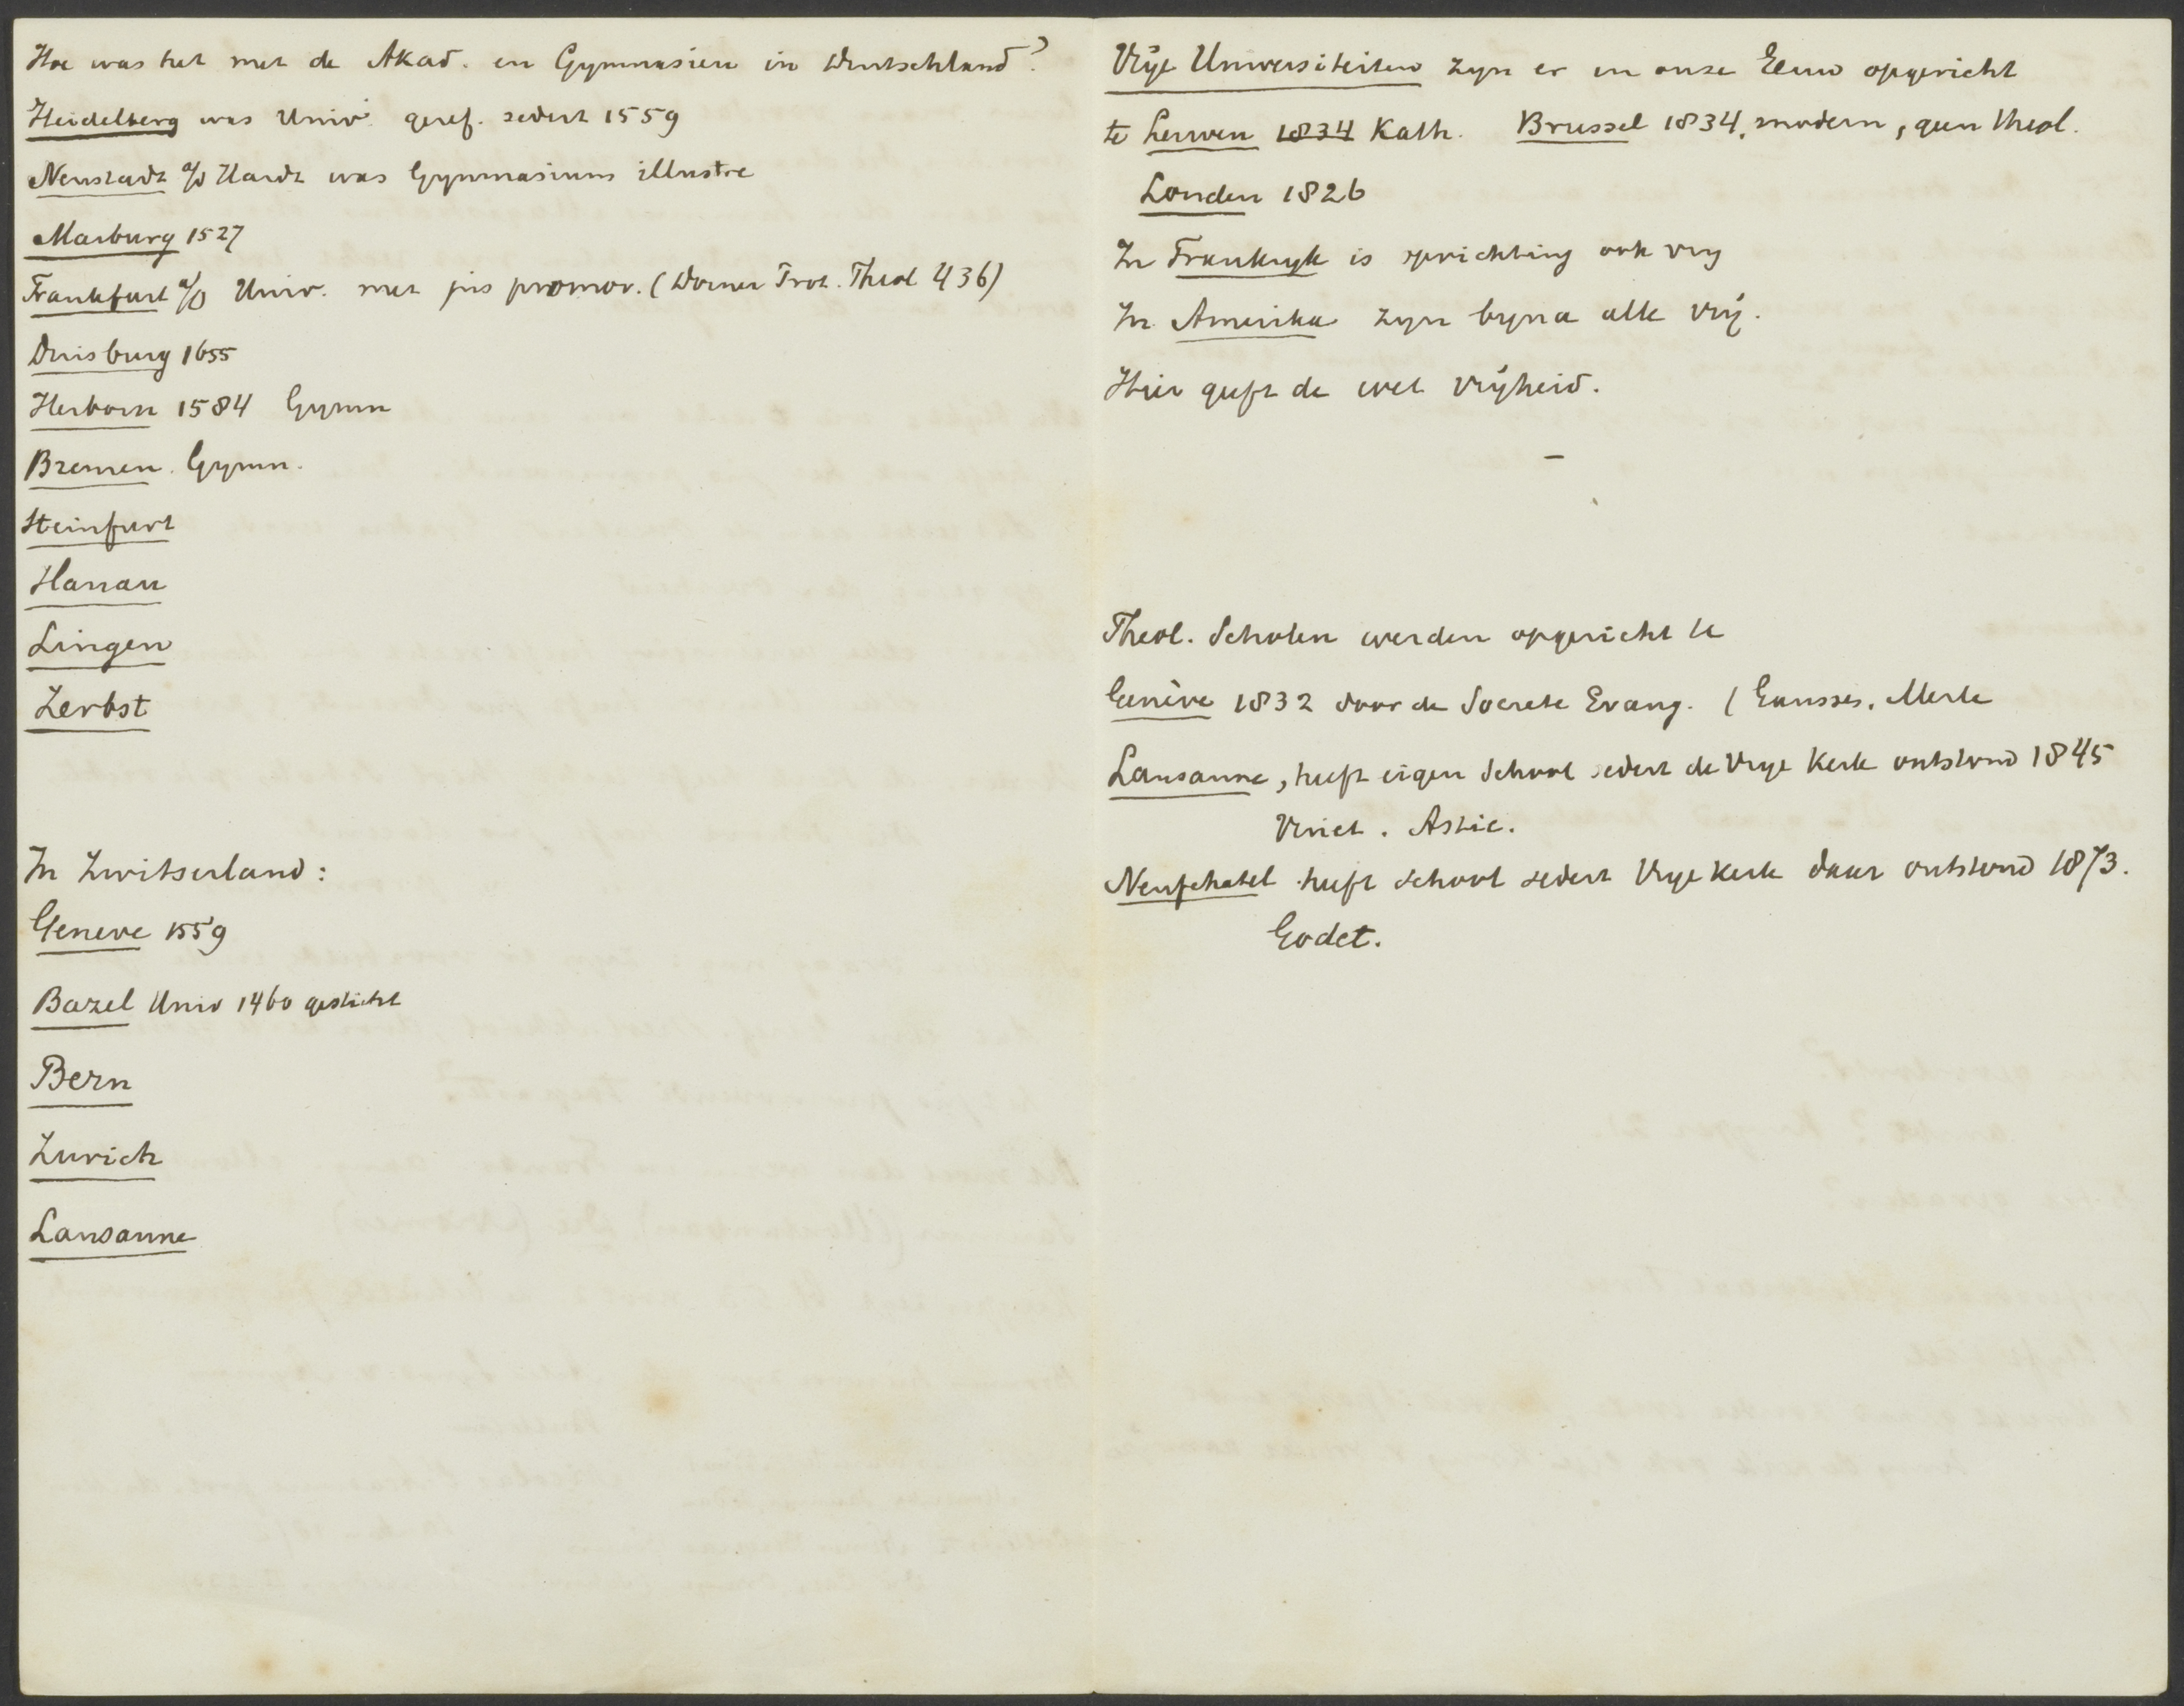 Hoe was het met de Akad. en Gymnasien in Deutschland?
Heidelberg was Univ. geref. sedert 1559
Neustadt a/d Hardt was Gymnasium illustre
Marburg 1527
Frankfurt a/O Univ. met jus promov. (Dorner Prot. Theol 436)
Duisburg 1655
Herborn 1584 Gymn
Bremen. Gymn.
Steinfurt
Hanau
Lingen
Zerbst
In Zwitserland:
Geneve 1559
Bazel Univ 1460 gesticht
Bern
Zurich
Lausanne
Vrije Universiteiten zyn er in onze Eeuw opgericht
te Leuven 1834 Kath. Brussel 1834, modern, geen theol.
Londen 1826
In Frankryk is oprichting ook vry
In Amerika zyn byna alle vrij.
Hier geeft de wet vrijheid.
–
Theol. Scholen werden opgericht te
Genève 1832 door de Societe Evang. (Gausses, Merle
Lausanne, heeft eigen School sedert de Vrye Kerk ontstond 1845
Vinet. Astié.
Neufchatel heeft school sedert Vrye Kerk daar ontstond 1873.
Godet.